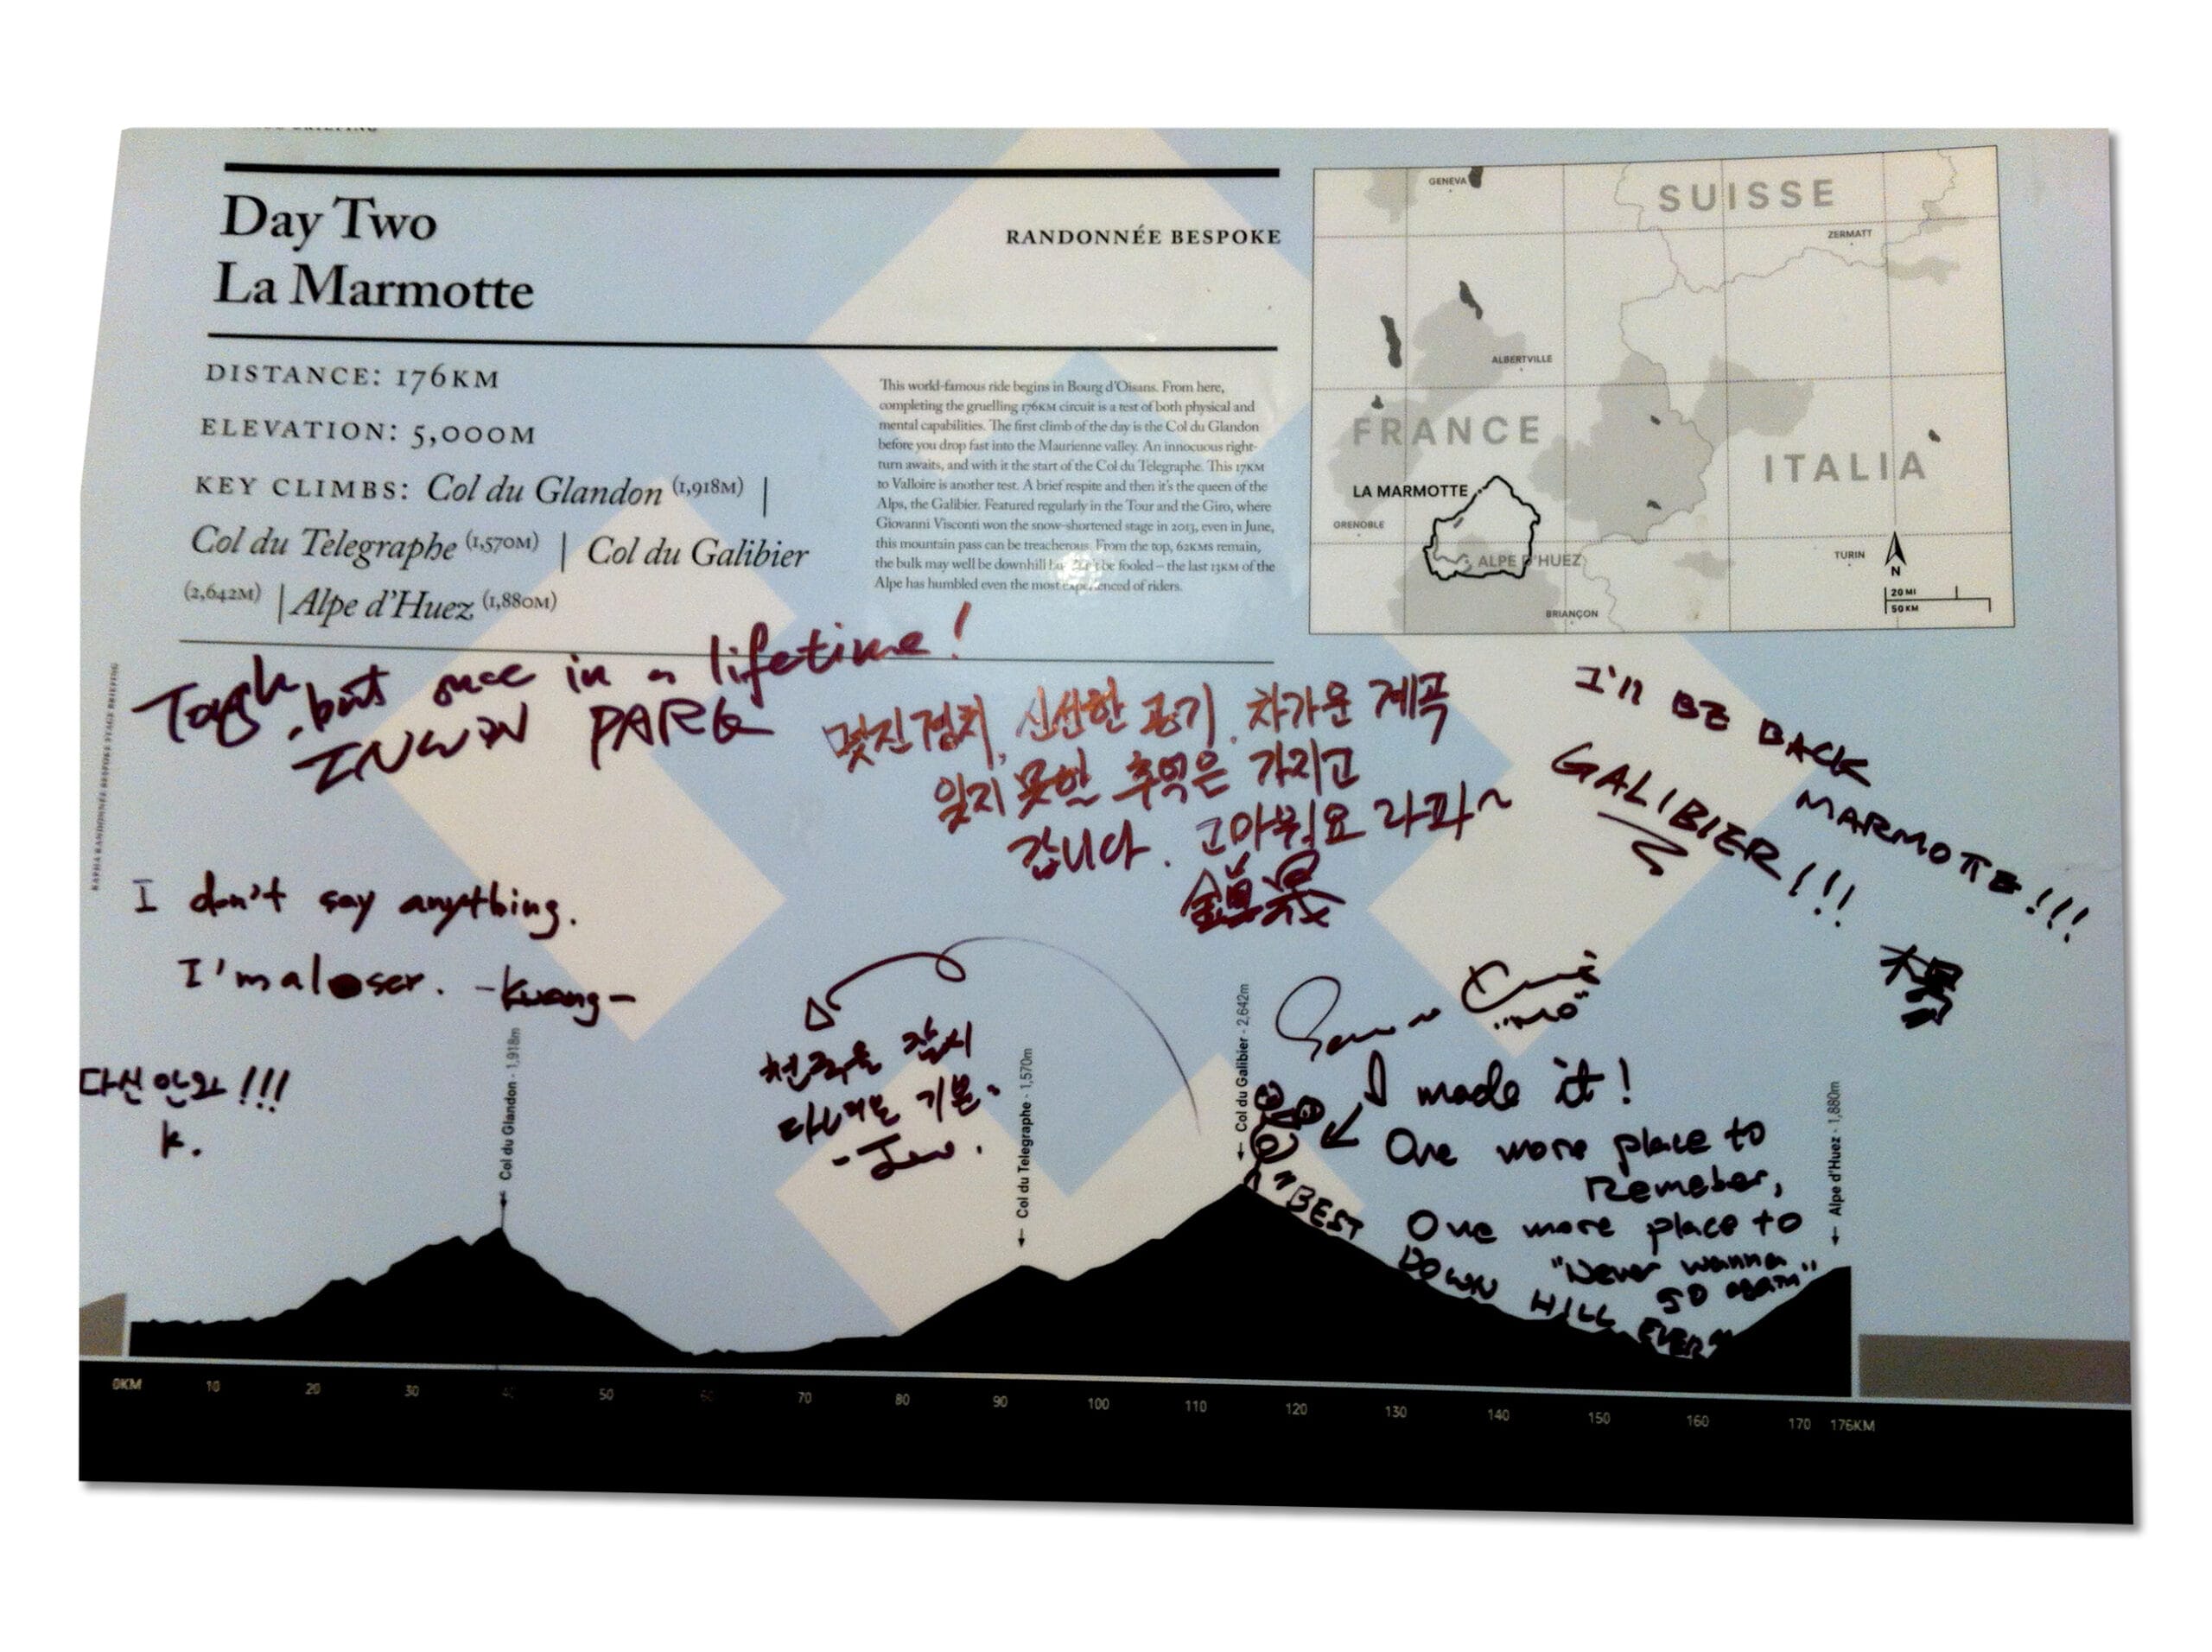 Day Two
La Marmotte
RANDONNÉE BESPOKE
DISTANCE: 176KM
ELEVATION: 5,000M
KEY CLIMBS: Col du Glandon (1,918M) |
Col du Telegraphe (1,570M) | Col du Galibier
(2,642M) | Alpe d'Huez (1,880M)
This world-famous ride begins in Bourg d'Oisans. From here,
completing the gruelling 176KM circuit is a test of both physical and
mental capabilities. The first climb of the day is the Col du Glandon
before you drop fast into the Maurienne valley. An innocuous right-
turn awaits, and with it the start of the Col du Telegraphe. This 17KM
to Valloire is another test. A brief respite and then it's the queen of the
Alps, the Galibier. Featured regularly in the Tour and the Giro, where
Giovanni Visconti won the snow-shortened stage in 2013, even in June,
this mountain pass can be treacherous. From the top, 62KMS remain,
the bulk may well be downhill be fooled – the last 13KM of the
Alpe has humbled even the most experienced of riders.
GENEVA
SUISSE
ZERMATT
ALBERTVILLE
FRANCE
ITALIA
LA MARMOTTE
GRENOBLE
ALPE D'HUEZ
TURIN
N
BRIANÇON
20 MI
50 KM
RAPHA RANDONNÉE BESPOKE STAGE BRIEFING
Tough, but once in a lifetime!
INWON PARK
멋진 경치, 신선한 공기, 차가운 계곡
잊지 못할 추억은 가지고
갑니다. 고마워요 라파~
I'll BE BACK
MARMOTTE!!!
GALIBIER!!!
I don't say anything.
I'm a loser. -Kwang-
다신 안와!!!
K.
천국을 잠시
다녀온 기분.
I made it!
One more place to
Remeber,
One more place to
"Never wanna
go again"
"BEST
DOWN HILL EVER"
Col du Glandon - 1,918m
Col du Telegraphe - 1,570m
Col du Galibier - 2,642m
Alpe d'Huez - 1,880m
0KM 10 20 30 40 50 60 70 80 90 100 110 120 130 140 150 160 170 176KM